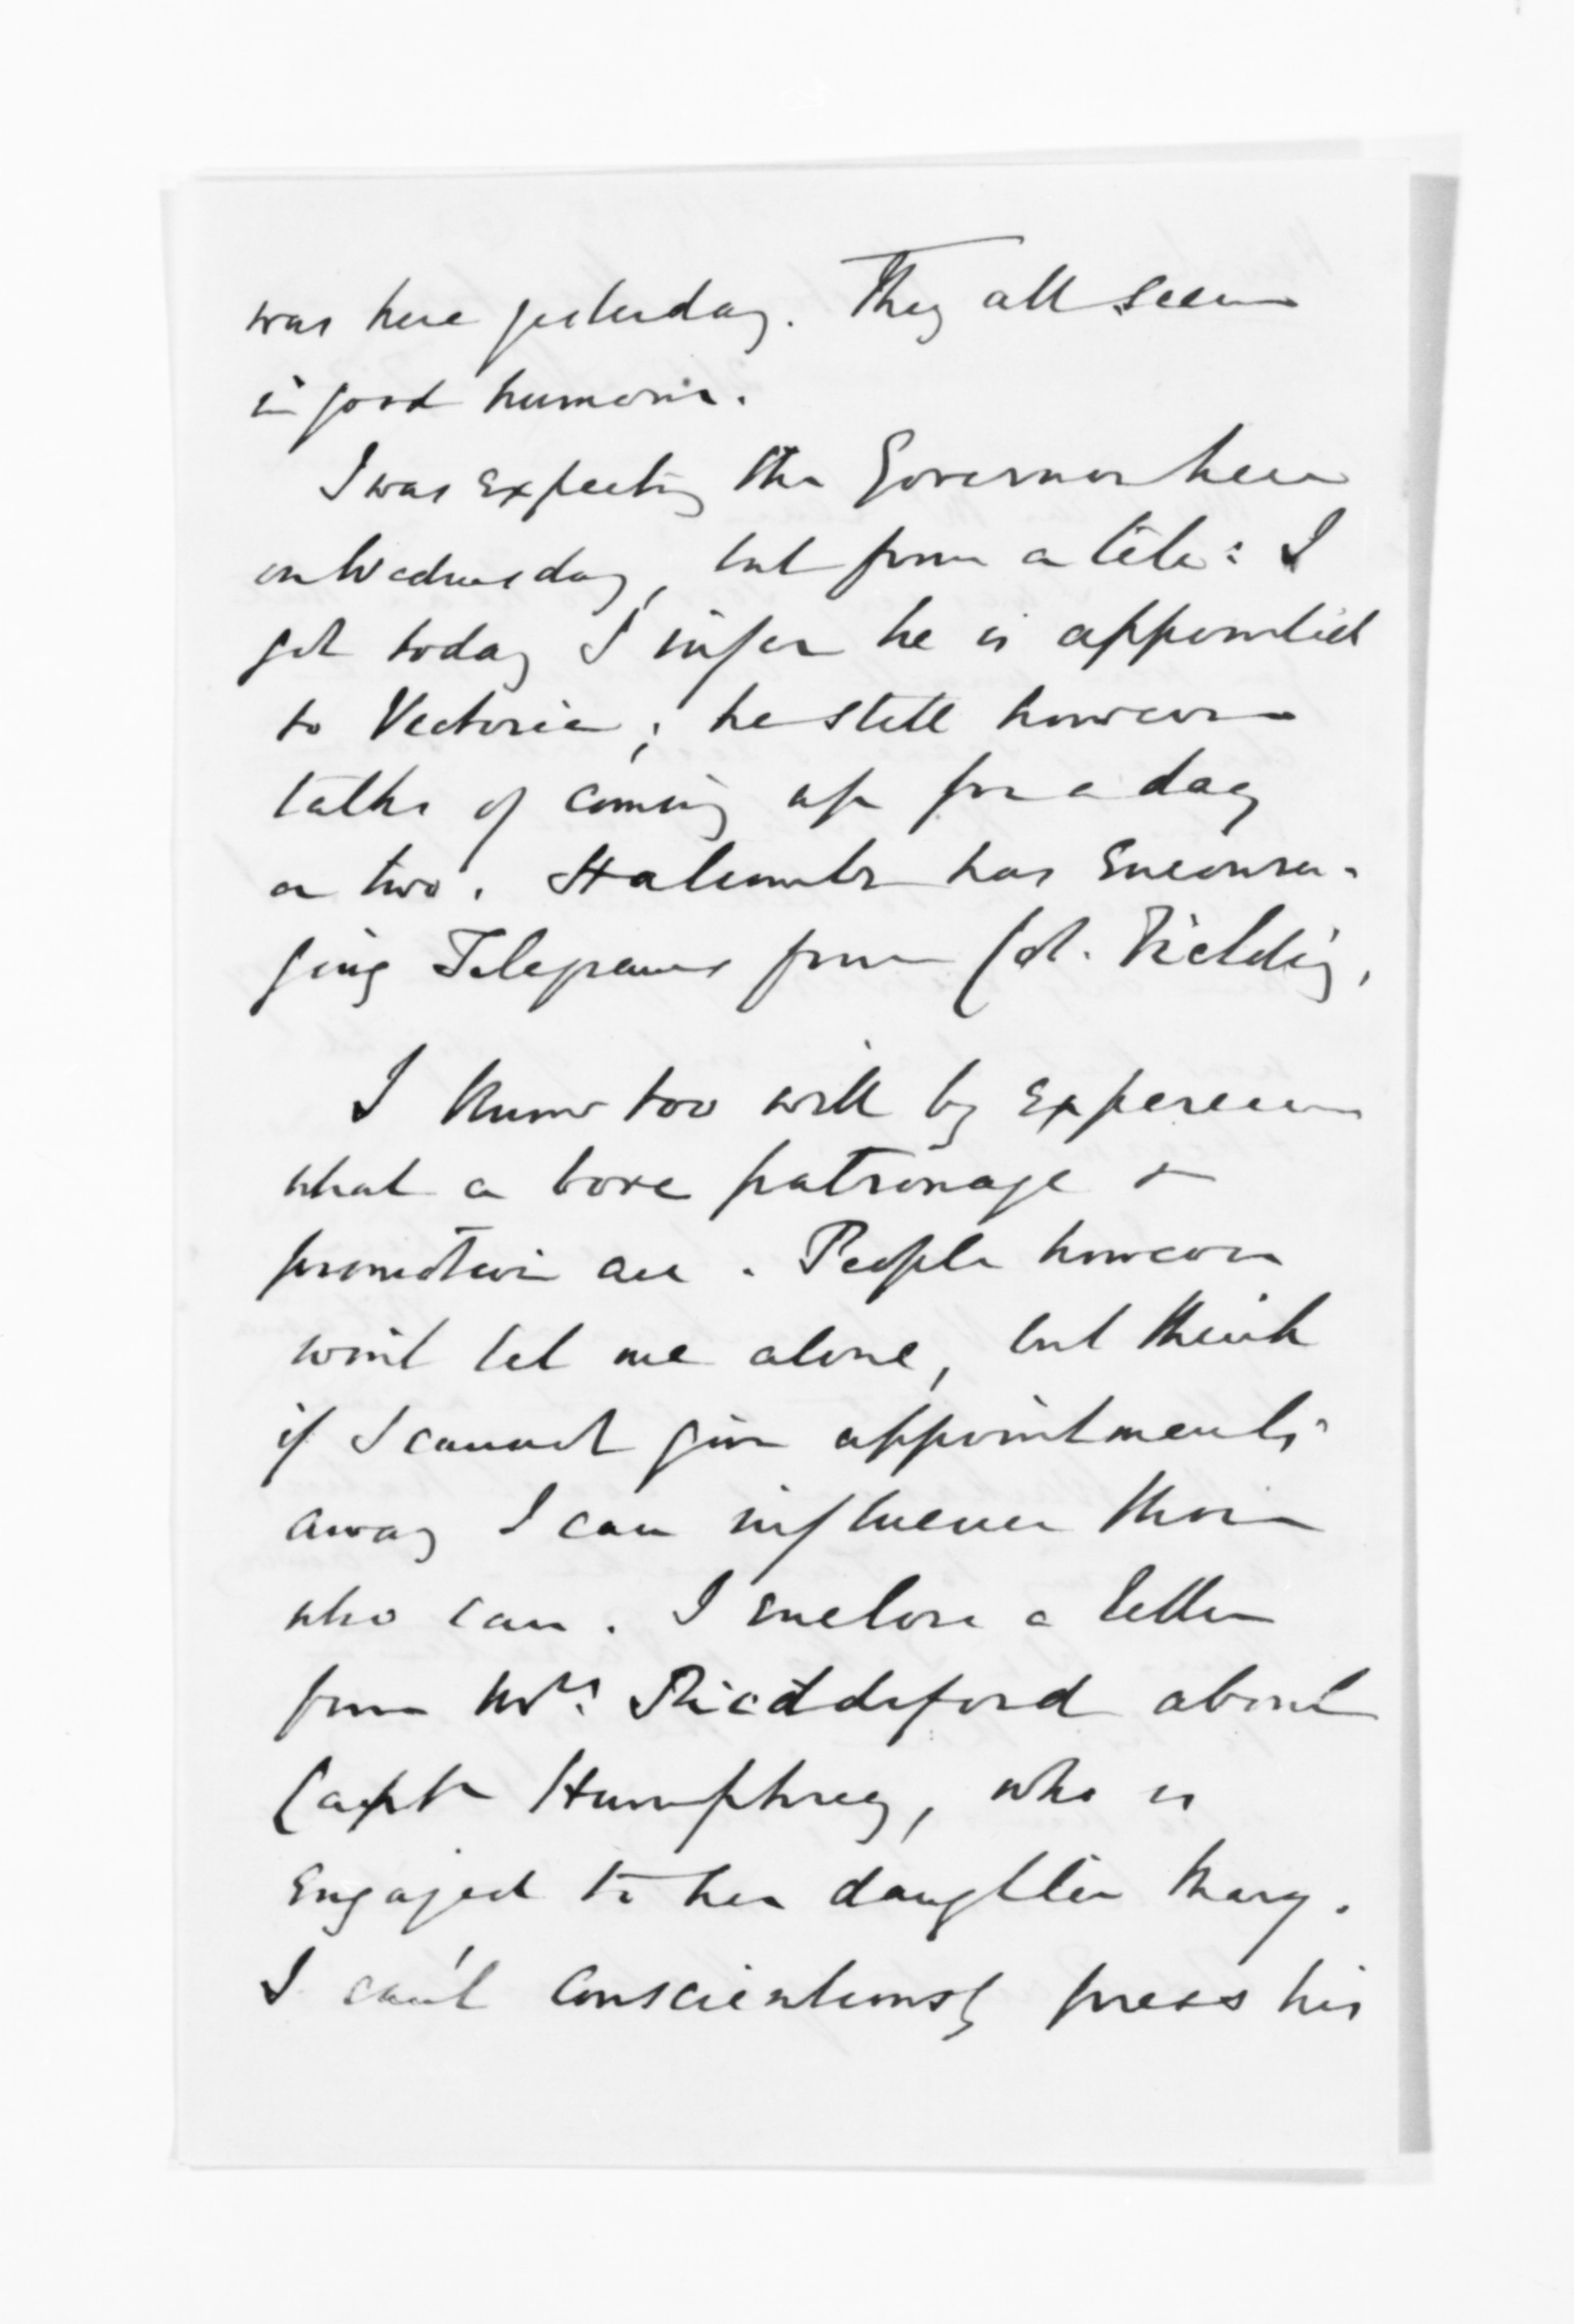 was here yesterday. They all seem
in good humour.
I was expecting the Governor here
on Wednesday, but from a tele: I
got today I infer he is appointed
to Victoria; he still however
talks of coming up for a day
or two. Halcombe has encoura-
ging Telegrams from Col. Fielding,
I know too well by experience
what a bore patronage &
promotion are. People however
won't let me alone, but think
if I cannot give appointments
away I can influence those
who can. I enclose a letter
from Mrs. Riddiford about
Captn Humphrey, who is
engaged to her daughter Mary.
I can't conscientiously press his